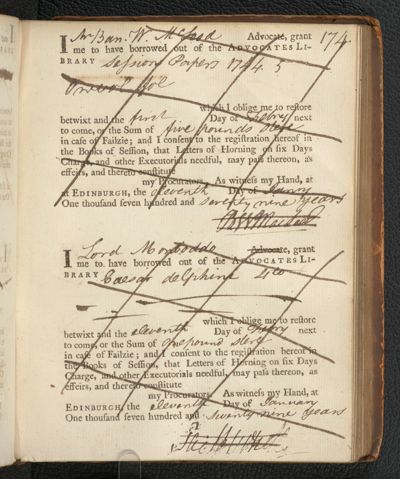 174.
I Mr Ban: W McLeod Advocate, grant
me to have borrowed out of the ADVOCATES LI-
BRARY Session Papers 1744. 5
One vol fol
which I oblige me to restore
betwixt and the first Day of Febry next
to come, or the Sum of five pounds sterg
in case of Failzie; and I consent to the registration hereof in
the Books of Session, that Letters of Horning on six Days
Charge, and other Executorials needful, may pass thereon, as
effeirs, and thereto constitute
my Procurators. As witness my Hand, at
at EDINBURGH, the eleventh Day of Janry
One thousand seven hundred and seventy nine years
I Lord Monboddo Advocate, grant
me to have borrowed out of the ADVOCATES LI-
BRARY Caesar delphini 4to
which I oblige me to restore
betwixt and the eleventh Day of Febry next
to come, or the Sum of One pound sterg
in case of Failzie; and I consent to the registration hereof in
the Books of Session, that Letters of Horning on six Days
Charge, and other Executorials needful, may pass thereon, as
effeirs, and thereto constitute
my Procurators. As witness my Hand, at
EDINBURGH, the eleventh Day of January
One thousand seven hundred and seventy nine years